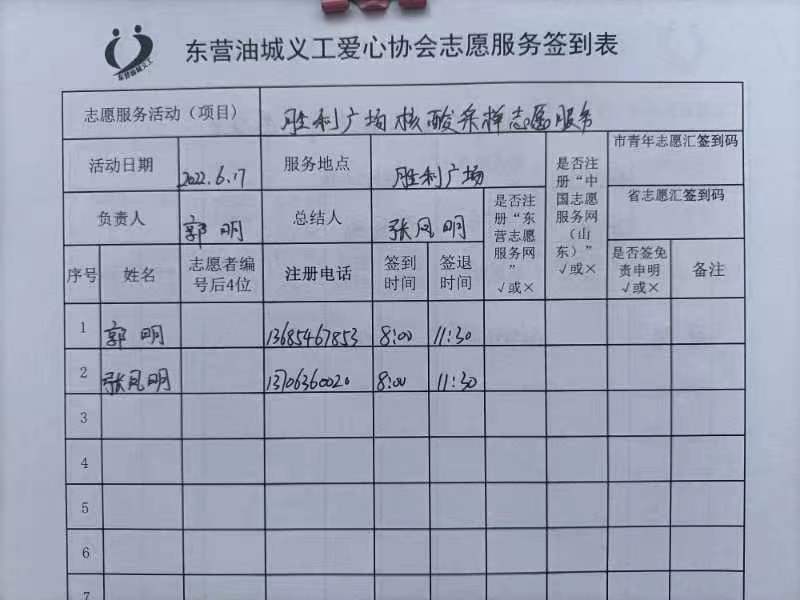 东营油城义工
东营油城义工爱心协会志愿服务签到表
志愿服务活动（项目） 胜利广场核酸采样志愿服务
活动日期 2022.6.17 服务地点 胜利广场
是否注册“东营志愿服务网” √或×
是否注册“中国志愿服务网（山东）” √或×
市青年志愿汇签到码
省志愿汇签到码
负责人 郭明 总结人 张凤明
序号 姓名 志愿者编号后4位 注册电话 签到时间 签退时间 是否签免责申明 √或× 备注
1 郭明 13685467853 8:00 11:30
2 张凤明 13706360020 8:00 11:30
3
4
5
6
7